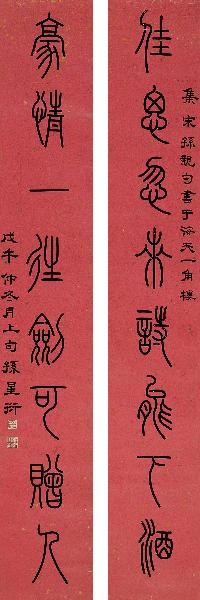 佳思忽來詩能下酒
集宋孫覿句書于濟天一角樓
豪情一往劍可贈人
戊午仲冬月上旬孫星衍